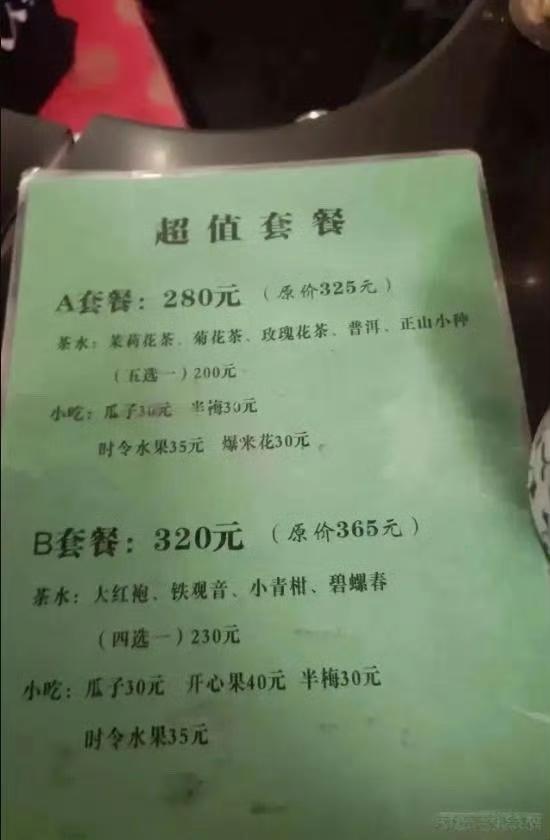 超值套餐
A套餐：280元 （原价325元）
茶水：茉莉花茶、菊花茶、玫瑰花茶、普洱、正山小种
（五选一）200元
小吃：瓜子30元 半梅30元
时令水果35元 爆米花30元
B套餐：320元 （原价365元）
茶水：大红袍、铁观音、小青柑、碧螺春
（四选一）230元
小吃：瓜子30元 开心果40元 半梅30元
时令水果35元